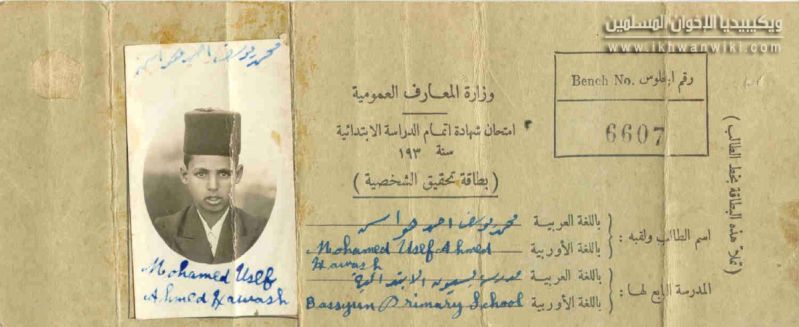 ويكيبيديا الإخوان المسلمين
www.ikhwanwiki.com
محمد يوسف احمد هواش
Mohamed Usef
Ahmed Hawash
وزارة المعارف العمومية
امتحان شهادة اتمام الدراسة الابتدائية
سنة ١٩٣
(بطاقة تحقيق الشخصية)
Bench No. رقم الجلوس
6607
(تملأ هذه البطاقة بخط الطالب)
اسم الطالب ولقبه:
باللغة العربية محمد يوسف احمد هواش
باللغة الأوربية Mohamed Usef Ahmed
Hawash
المدرسة التابع لها:
باللغة العربية مدرسة بسيون الابتدائية
باللغة الأوربية Bassyun Primary School